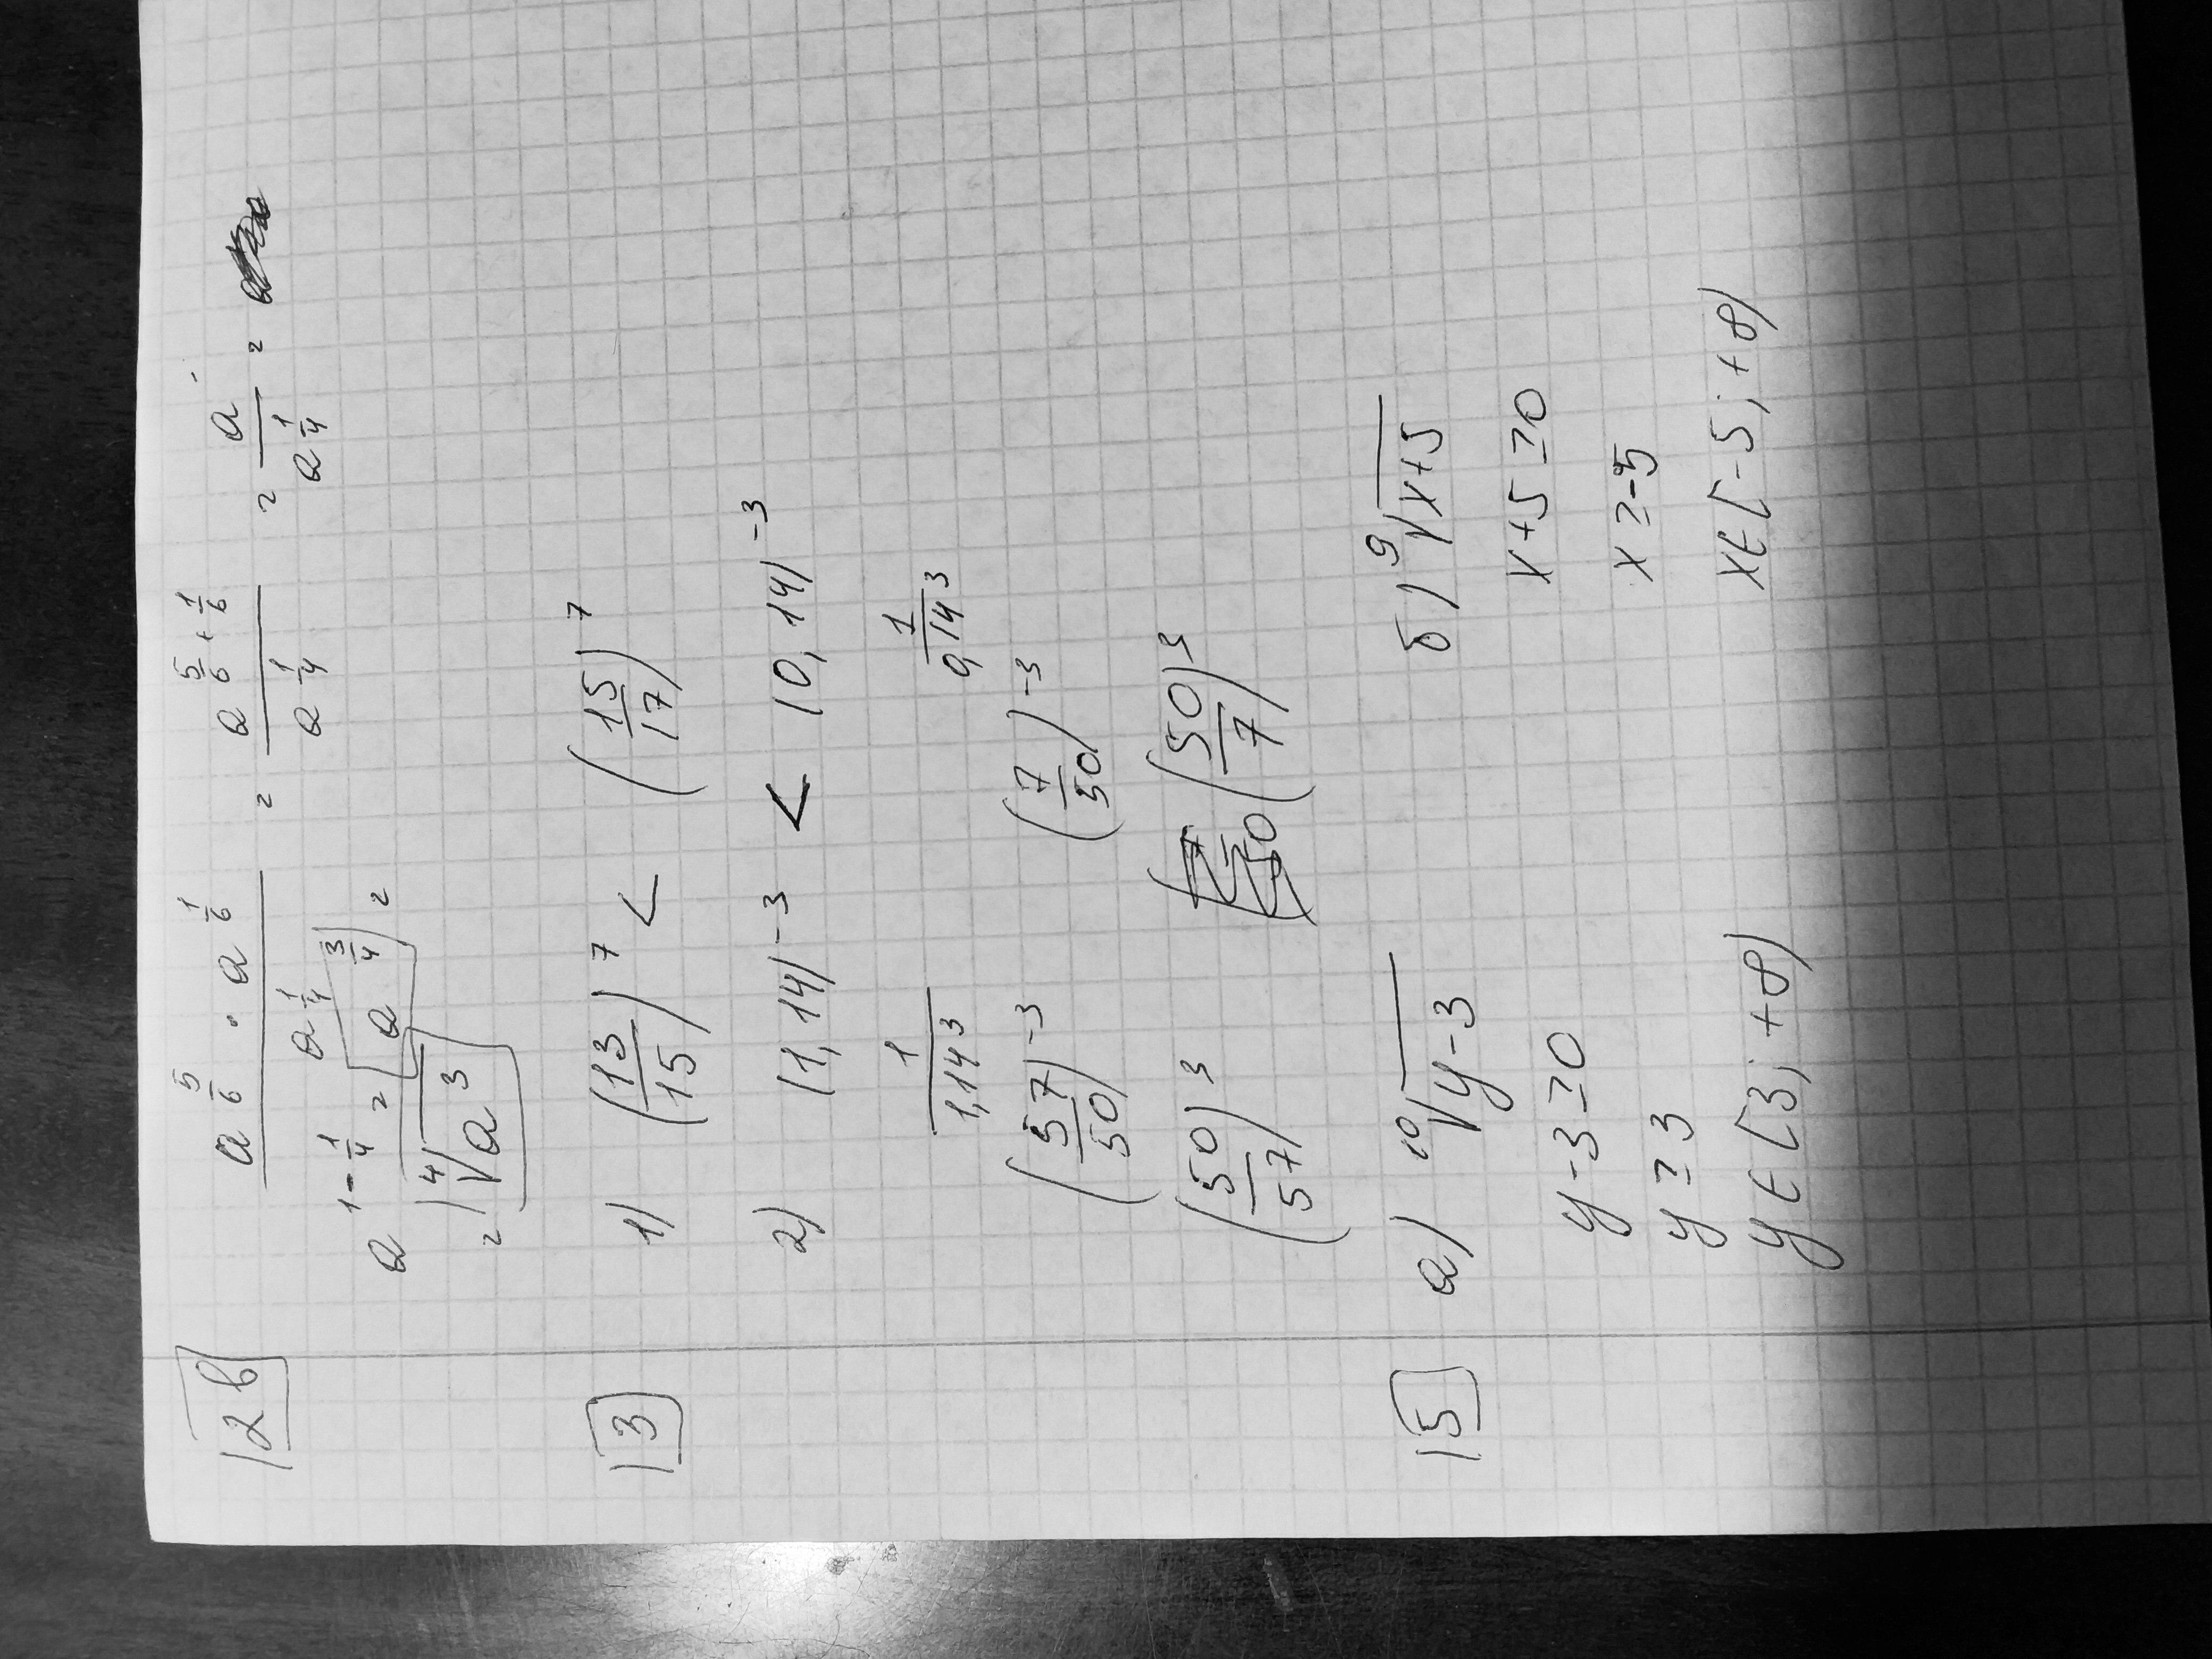 2в a^(5/6) · a^(1/6) / a^(1/4) = a^(5/6 + 1/6) / a^(1/4) = a / a^(1/4) =
a^(1 - 1/4) = a^(3/4) =
= ⁴√a³
3 1) (13/15)^7 < (15/17)^7
2) (1,14)^-3 < (0,14)^-3
1/1,14³ 1/0,14³
(57/50)^-3 (7/50)^-3
(50/57)³ (50/7)³
5 а) ¹⁰√y-3 б) ⁹√x+5
y-3≥0 x+5≥0
y≥3 x≥-5
y∈[3; +∞) x∈[-5; +∞)